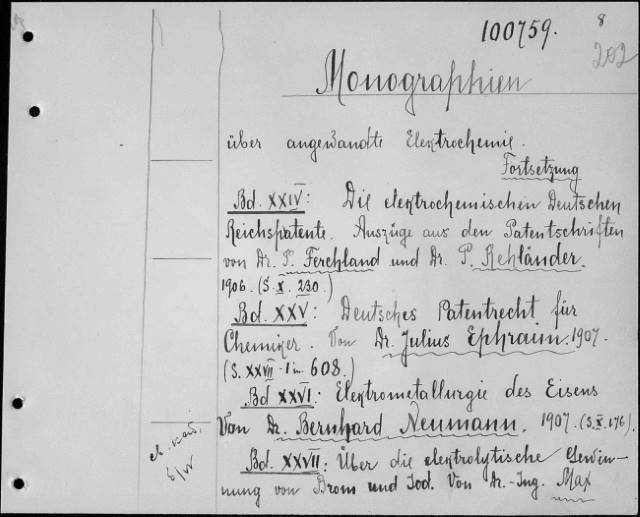 100759.
8
202
Monographien
über angewandte Elektrochemie.
Fortsetzung
Bd. XXIV: Die elektrochemischen Deutschen
Reichspatente. Auszüge aus den Patentschriften
von Dr. P. Ferchland und Dr. P. Rehländer.
1906. (S. X. 230.)
Bd. XXV: Deutsches Patentrecht für
Chemiker. Von Dr. Julius Ephraim. 1907.
(S. XXVII. 1 in 608.)
Bd XXVI: Elektrometallurgie des Eisens
Von Dr. Bernhard Neumann. 1907. (S. X. 176.)
Bd. XXVII: Über die elektrolytische Gewin-
nung von Brom und Jod. Von Dr.-Ing. Max